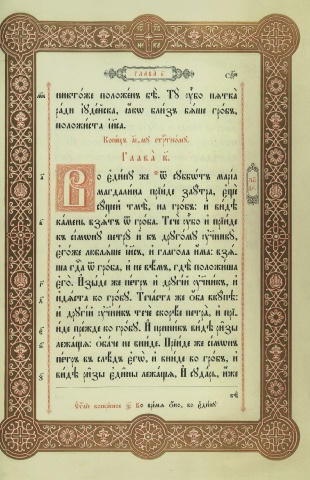 Глава к҃
никтоже положенъ бѣ. Ту ᲂу҆̀бо пѧтка
ради і҆ꙋдейска, ꙗ҆́кѡ близъ бѧше гробъ,
положиста і҆и҃са.
Конецъ
Глава к҃.
Во є҆ди́нꙋ же ѿ сꙋббѡ́тъ марі́а
магдали́на прїи́де заꙋ́тра, є҆щѐ
сꙋ́щей тмѣ̀, на гро́бъ: и҆ ви́дѣ
ка́мень взѧ́тъ ѿ гро́ба. Течѐ ᲂу҆̀бо и҆ прїи́де
къ сі́мѡнꙋ петрꙋ̀ и҆ къ дрꙋго́мꙋ ᲂу҆ченикꙋ̀,
є҆го́же люблѧ́ше і҆и҃съ, и҆ глаго́ла и҆́ма: взѧ́-
ша гд҇а ѿ гро́ба, и҆ не вѣ́мъ, гдѣ̀ положи́ша
є҆го̀. И҆зы́де же пе́тръ и҆ дрꙋгі́й ᲂу҆чн҃къ, и҆
и҆дѧ́ста ко гро́бꙋ. Теча́ста же ѻ҆́ба вкꙋ́пѣ:
и҆ дрꙋгі́й ᲂу҆чн҃къ течѐ скорѣ́е петра̀, и҆ прі-
и́де пре́жде ко гро́бꙋ. И҆ прини́къ ви́дѣ ри̑зы
лежа́щѧ: ѻ҆ба́че не вни́де. Прїи́де же сі́мѡнъ
пе́тръ в̾ слѣ́дъ є҆гѡ̀, и҆ вни́де во гро́бъ, и҆
ви́дѣ ри̑зы є҆ди̑ны лежа́щѧ, И҆ сꙋда́рь, и҆́же
бѣ̀
во вре́мѧ ѻ҆́но, во є҆ди́нꙋ